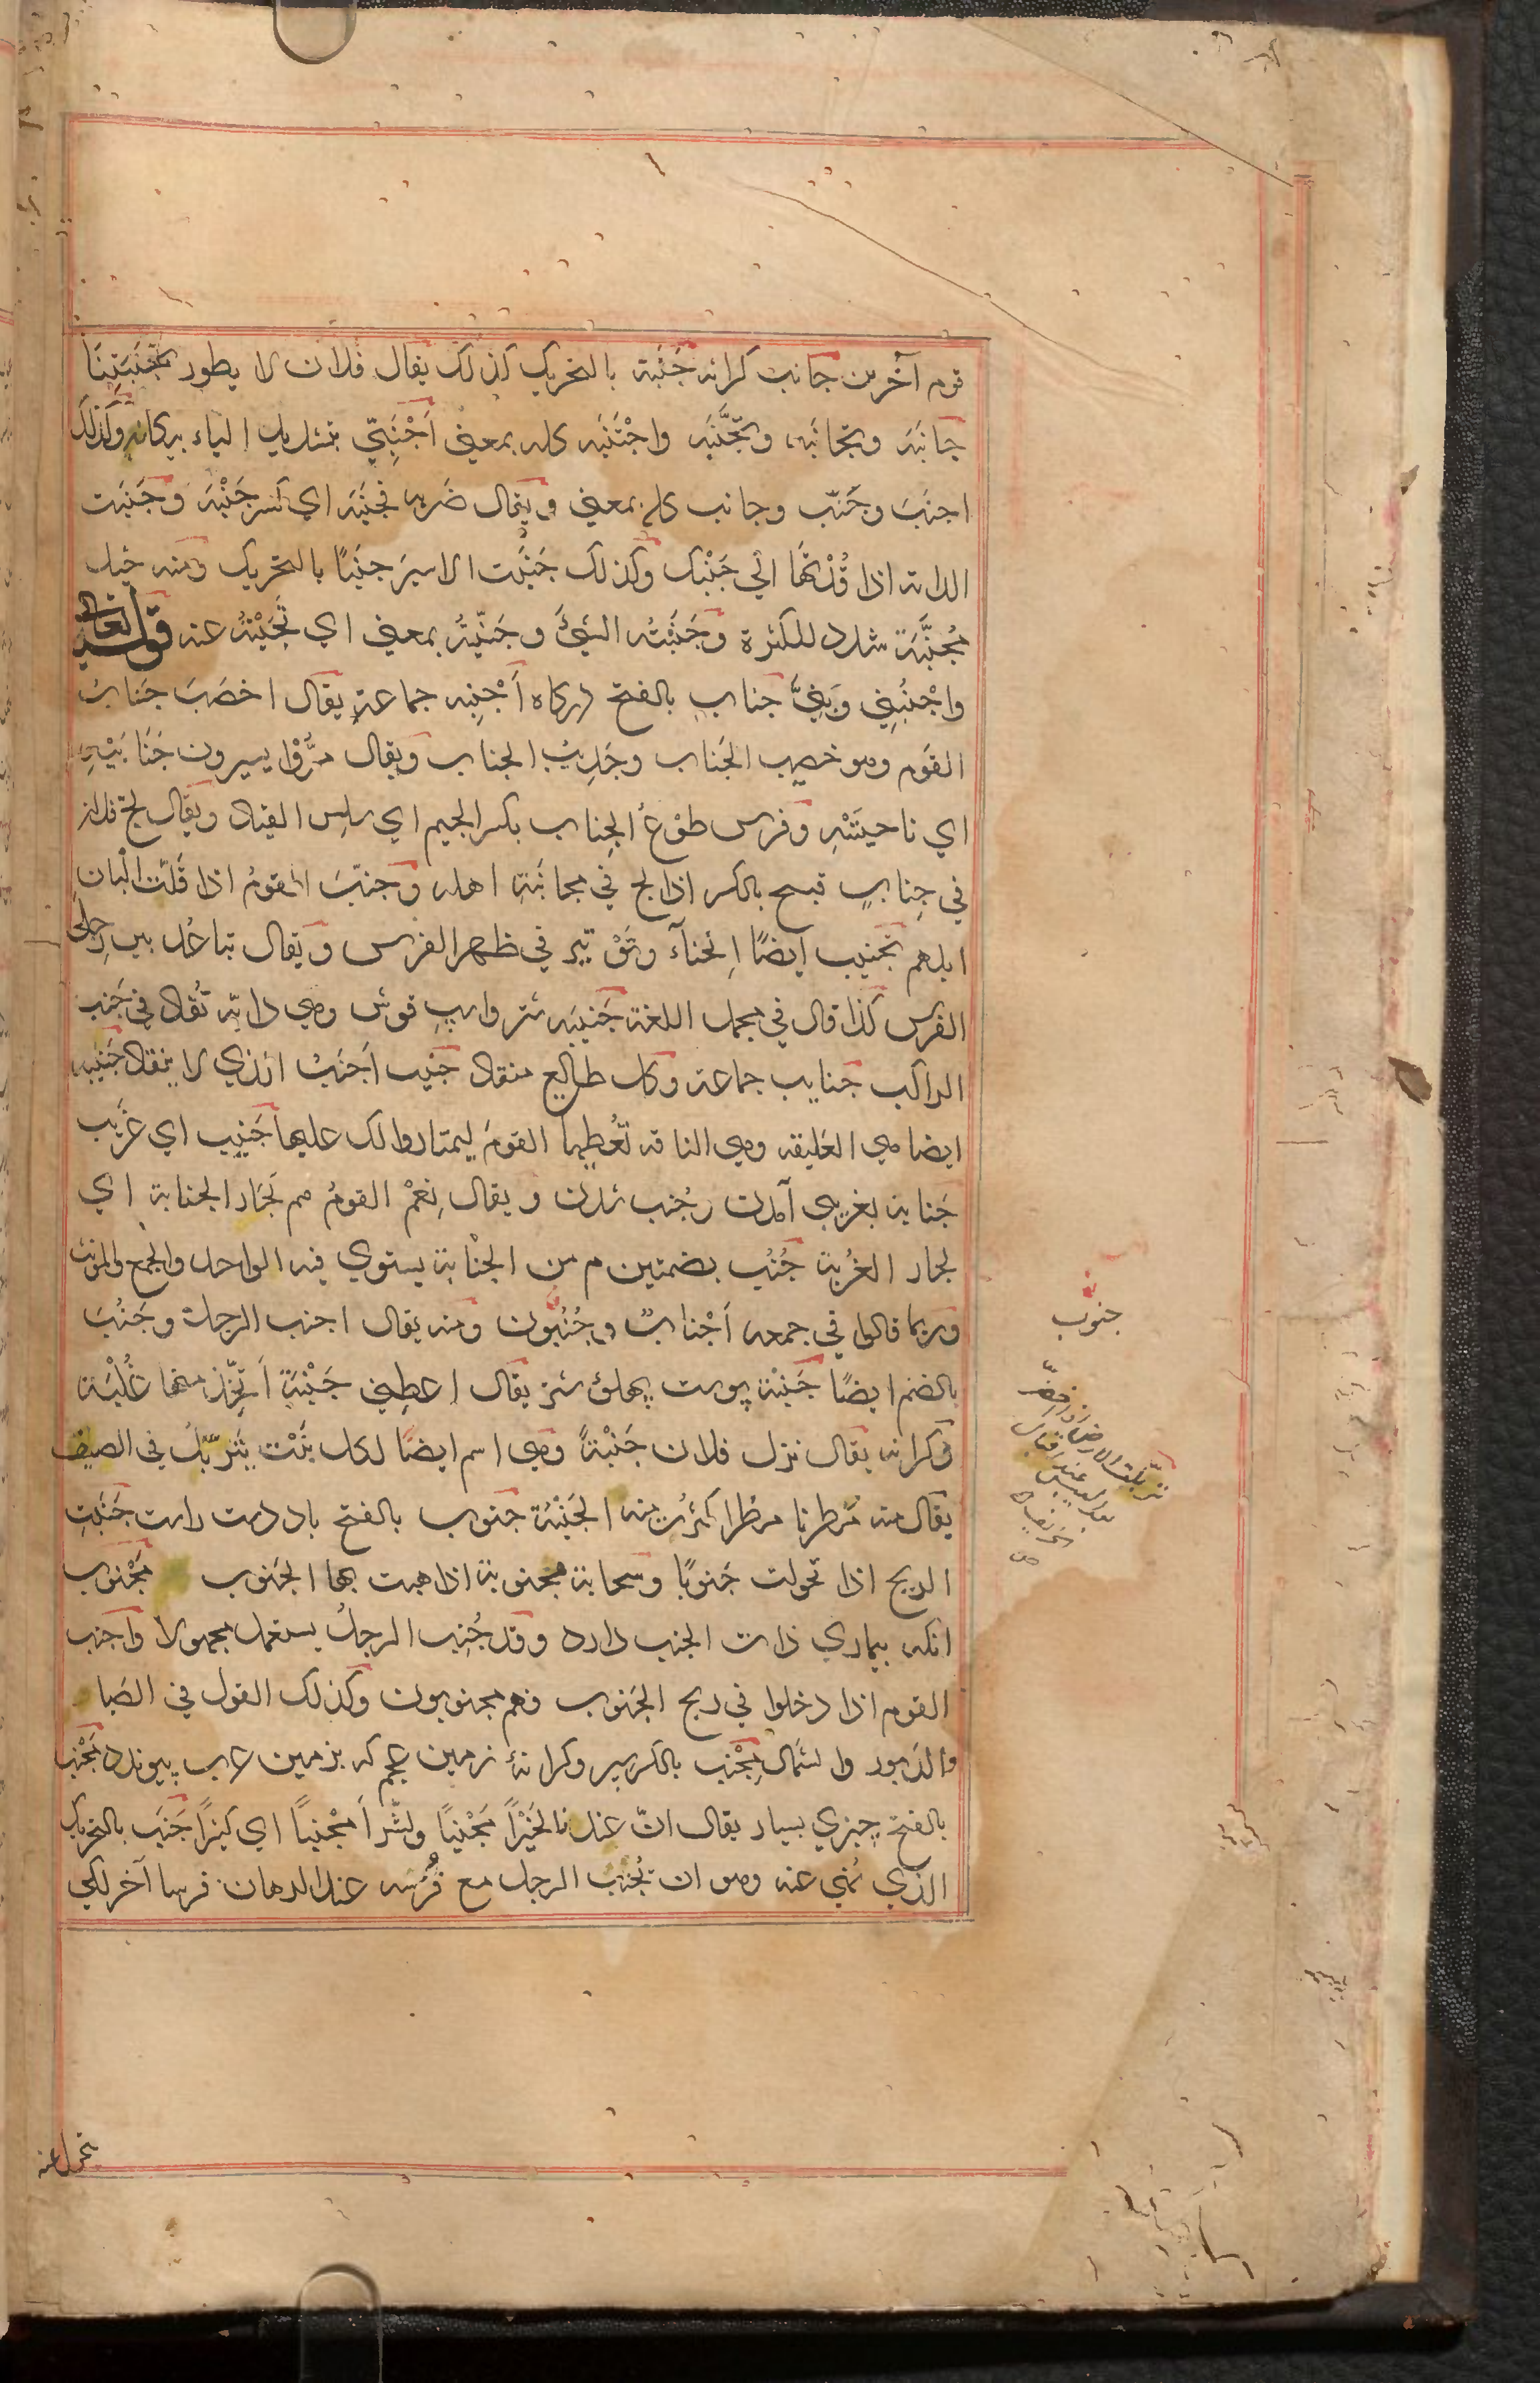 قوم آخرين جانب كرانه جَنَبَة بالتحريك كذلك يقال فلان لا يطور بجَنَبَتِنَا
جانَبَه وتجانَبَه وتجَنَّبَه واجْتَنَبَه كله بمعنى اَجْنَبِيّ بتشديد الياء بيكانه وكذلك
اجنَبَ وجَنَّب وجانب كله بمعنى ويقال ضربه فجَنَبَه اي كسر جَنْبَه وجَنَبَت
الدابة اذا قُدْتَهَا الي جَنْبك وكذلك جَنَبْت الاسيرَ جَنَبًا بالتحريك ومنه خيل
مُجَنَّبَة شدد للكثرة وجَنَبْتُه الشئَ وجَنَّبْتُه بمعنى اي نَحَّيْتُهُ عنه قوله تعالى
وَاجْنُبْنِي وَبَنِيَّ جناب بالفتح دركاه اَجْنِبه جماعة يقال اخصَبَ جَنابُ
القوم وهو خصيب الجَناب وجَدِيبُ الجناب ويقال مَرُّوْا يسيرون جَنَابَيْهِ
اي ناحيتَيْهِ وفرس طوْعُ الجِناب بكسر الجيم اي سلِس القياد ويقال لج فلان
في جِنابٍ قبيح بالكسر اذا لج في مجانَبَةِ اهله وجنّبَ القومُ اذا قَلَّت البان
ابلهم تجنيب ايضًا اِنحناءٌ وتَوْتير في ظهر الفرس ويقال تباعُد بين رِجلى
الفرس كذا قال في مجمل اللغة جَنيبَه شتر واسپ قوش وهي دابّة تُقاد في جَنب
الراكب جنايب جماعة وكل طايع منقاد جَنيب اَجنَبُ الذي لا ينقاد جَنيبه
ايضا هي العَليقه وهي الناقة تُعْطِيها القومَ ليمتاروا لك عليها جَنِيب اي غريب
جَنابة بغريبى آمدن وجُنب شدن ويقال نِعْمَ القومُ هم لجَارِ الجنابة اي
لجار الغُربة جُنُب بضمتين م من الجَنْابة يستوي فيه الواحد والجمع والمؤنث
وربما قالوا في جمعه اَجْنابٌ وجُنُبُون ومنه يقال اجنب الرجل وجَنُبَ
بالضم ايضًا جَنْبَة پوست پهلوئ شتر يقال اعطِني جَنْبَةً اَتّخِذ منها عُلْبَة
وكرانه يقال نزل فلان جَنْبَةً وهي اسم ايضًا لكل نَبْت يَتَرَبَّلُ في الصيف
يقال منه مُطِرنا مطرا كثُرت منه الجَنْبَةُ جنوب بالفتح باد دست راست جَنَبَتِ
الريح اذا تحولت جَنوبًا وسحابة مجنوبة اذا هبت بها الجَنوب مَجْنوب
انكه بيماري ذات الجنب دارد وقد جُنِب الرجلُ يستعمل مجهولا واجنب
القوم اذا دخلوا في ريح الجَنوب وهم مجنوبون وكذلك القول في الصَبا
والدَبور والشمال مِجْنَب بالكسر سپر وكرانهٔ زمين عجم كه بزمين عرب پيوندد مَجْنَب
بالفتح چيزي بسيار يقال انّ عندنا لخَيْرًا مَجْنَبًا ولشّراً مَجْنَبًا اي كثيرًا جَنَب بالتحريك
الذي نُهي عنه وهو ان يَجْنُب الرجل مع فُرَسَه عند الرهان فرسا آخر لكى
جنوب
تربّلت الارض اذا اخضرّت
بعد اليبس عند اقبال
الخريف
يتحول عنه